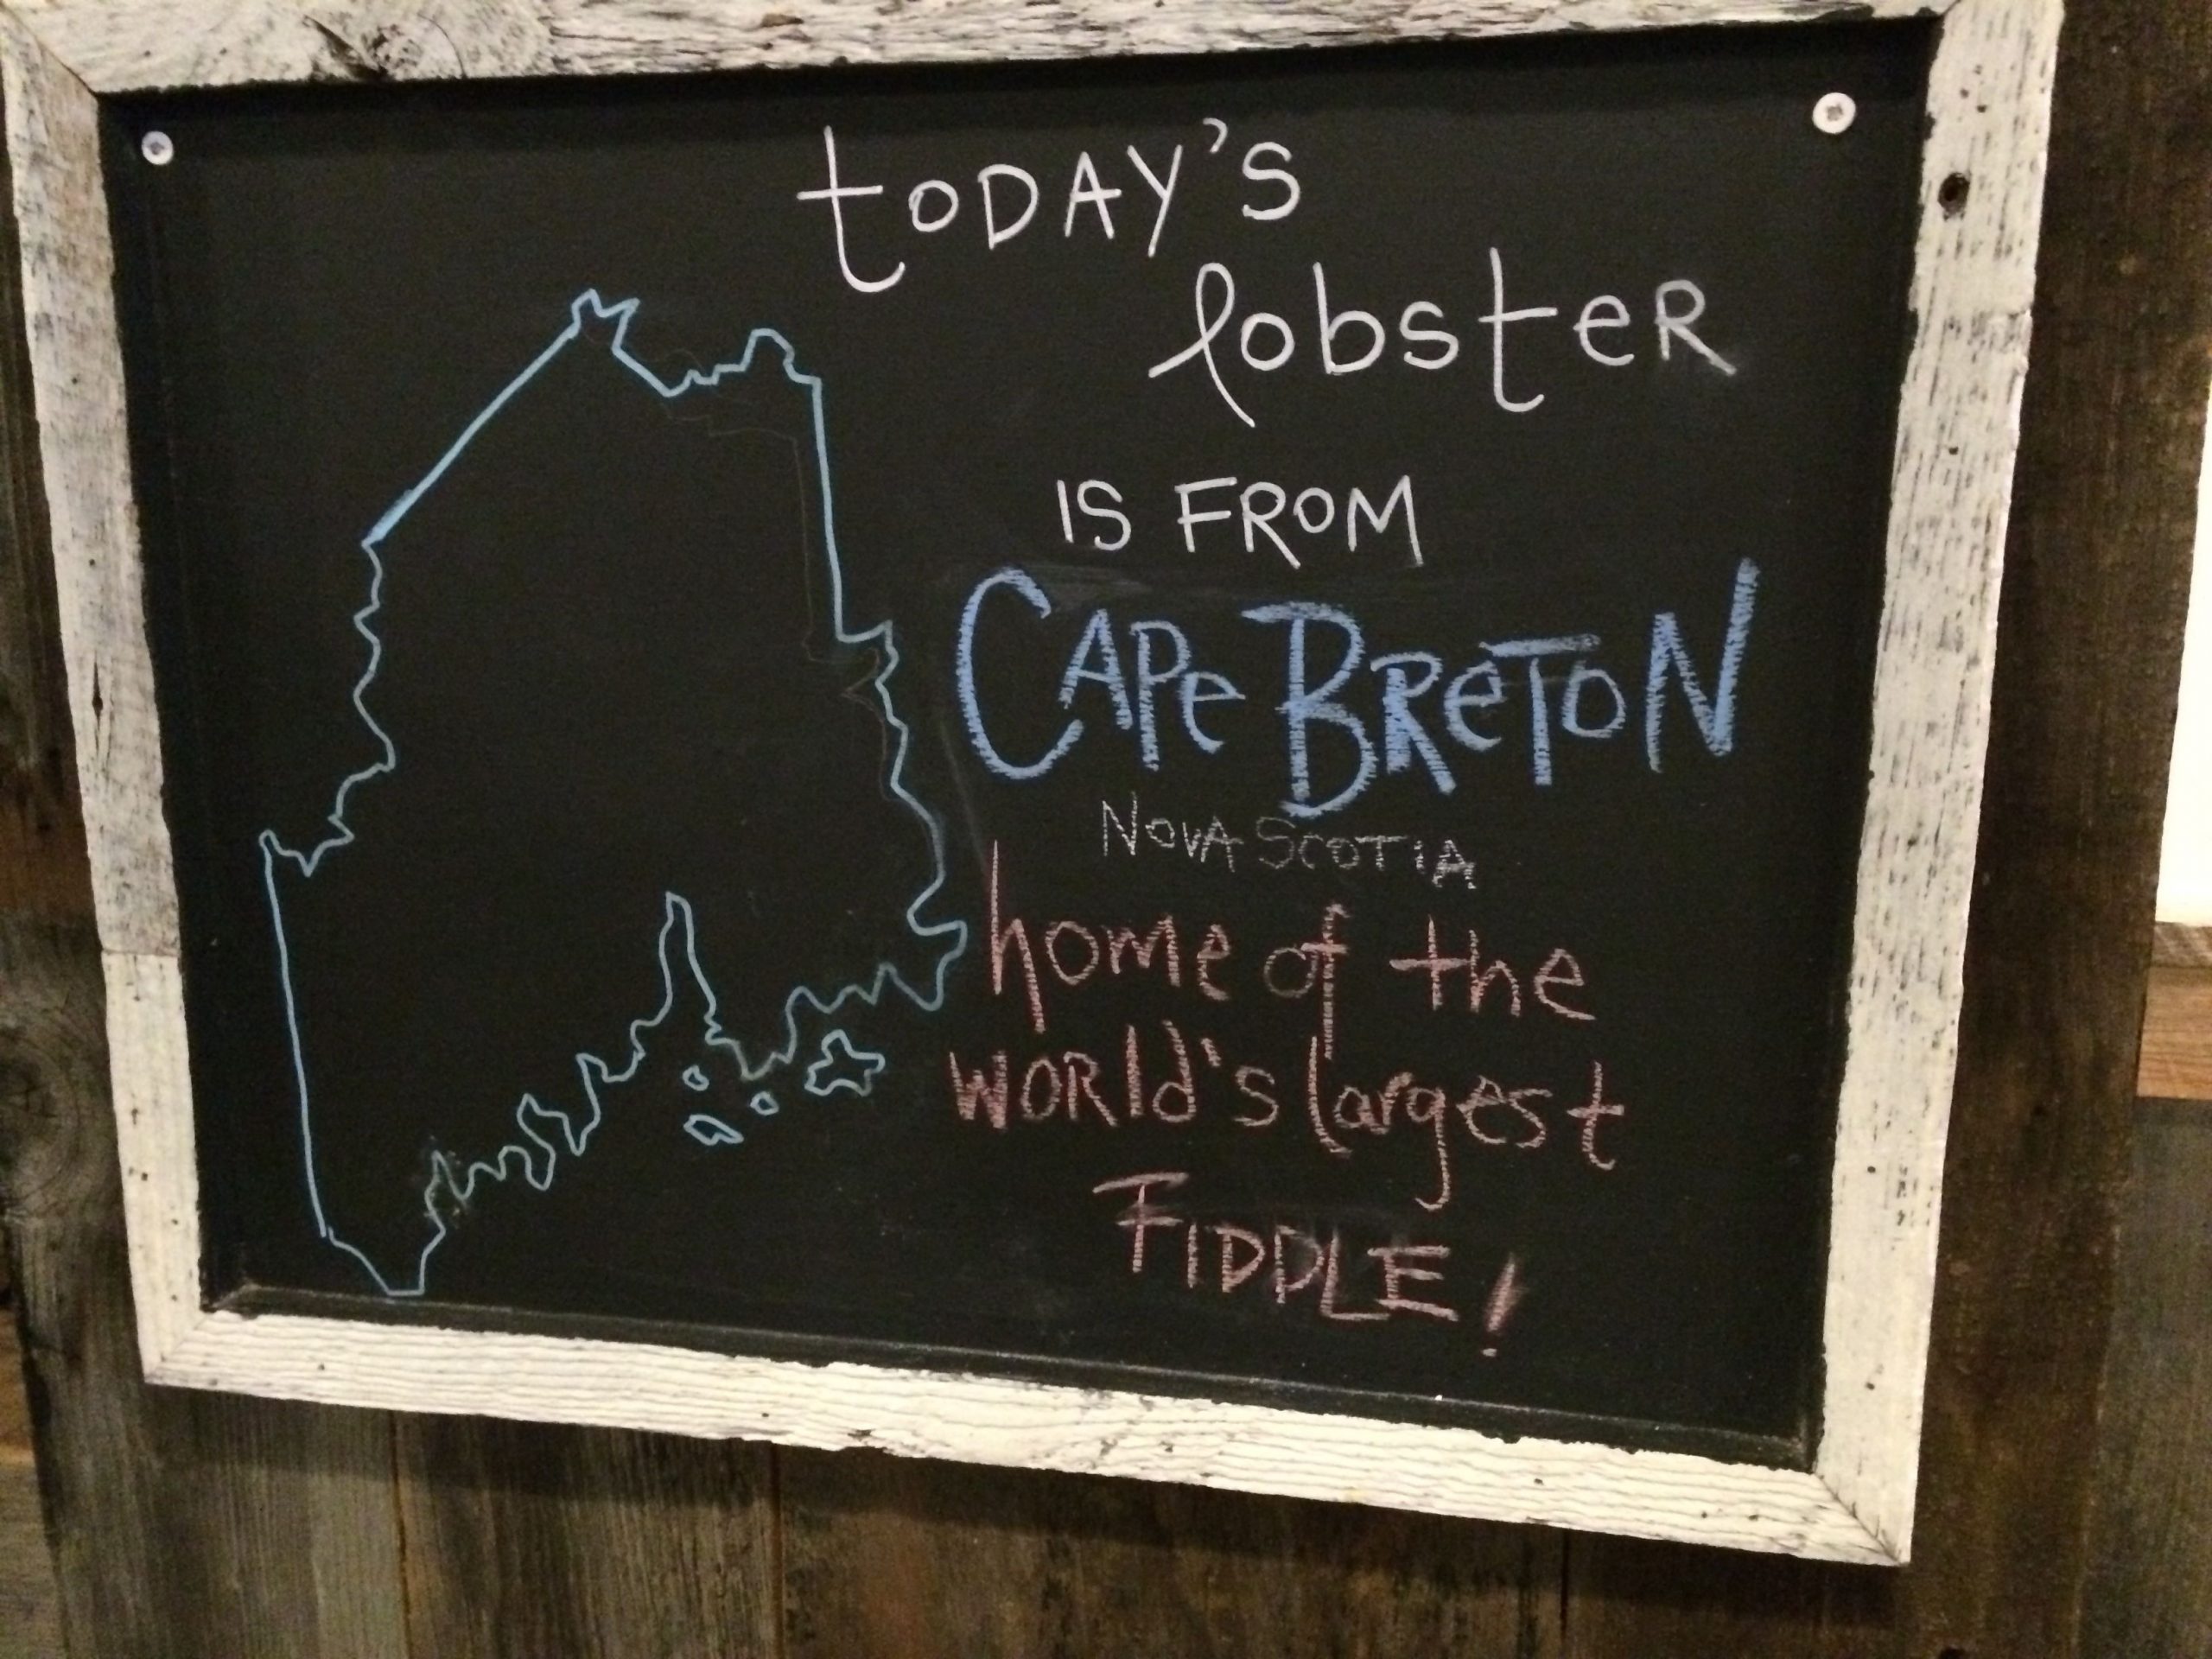 toDAY'S
lobsteR
IS FROM
CAPe BReToN
NOVA SCOTIA
home of the
WORld's largest
FIDDLE!